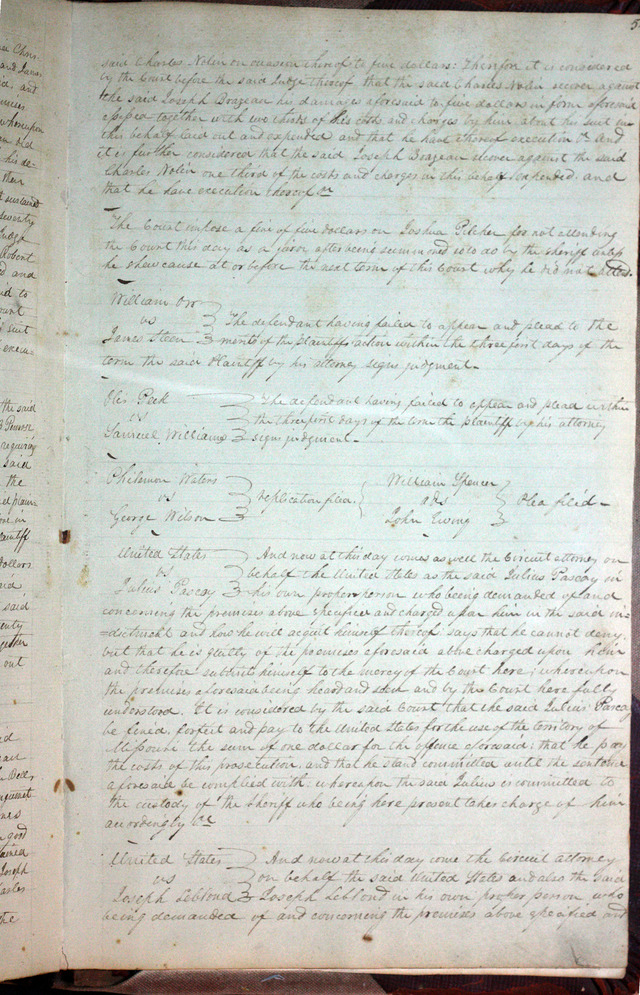 5
said Charles Nolin on occasion thereof to five dollars: Therefore it is considered
by the Court before the said Judge thereof that the said Charles Nolin recover against
the said Joseph Brazeau his damages aforesaid to five dollars in form aforesaid
assessed together with two thirds of his costs and charges by him about his suit in
this behalf laid out and expended and that he have thereof execution &c. And
it is further considered that the said Joseph Brazeau recover against the said
Charles Nolin one third of the costs and charges in this behalf expended. and
that he have execution thereof &c
The Court impose a fine of five dollars on Joshua Pilcher for not attending
the Court this day as a juror after being summoned so to do by the sheriff unless
he shew cause at or before the next term of this Court why he did not attend.
William Orr
vs The defendant having failed to appear and plead to the
James Steen merits of the plaintiffs action within the three first days of the
term the said Plaintiff by his attorney signs judgment.
Oles Peek The defendant having failed to appear and plead within
vs the three first days of the term the plaintiff by his attorney
Williams signs judgment.
Philemon Waters William Spencer
vs replication filed ads Plea filed
George Wilson John Ewing
United States And now at this day comes as well the Circuit attorney on
vs behalf the United States as the said Julius Pascay in
Julius Pascay his own proper person who being demanded of and
concerning the premises above specified and charged upon him in the said in=
=dictment and how he will acquit himself thereof: says that he cannot deny.
but that he is guilty of the premises aforesaid above charged upon him
and therefore submits himself to the mercy of the Court here; whereupon
the premises aforesaid being heard and seen and by the Court here fully
understood. It is considered by the said Court that the said Julius Pascay
be fined, forfeit and pay to the United States for the use of the territory of
Missouri the sum of one dollar for the offence aforesaid: that he pay
the costs of this prosecution. and that he stand committed until the sentence
aforesaid be complied with: whereupon the said Julius is committed to
the custody of the Sheriff who being here present takes charge of him
accordingly &c
United States And now at this day come the Circuit attorney
vs on behalf the said United States and also the said
Joseph Leblond Joseph Leblond in his own proper person who
being demanded of and concerning the premises above specified and